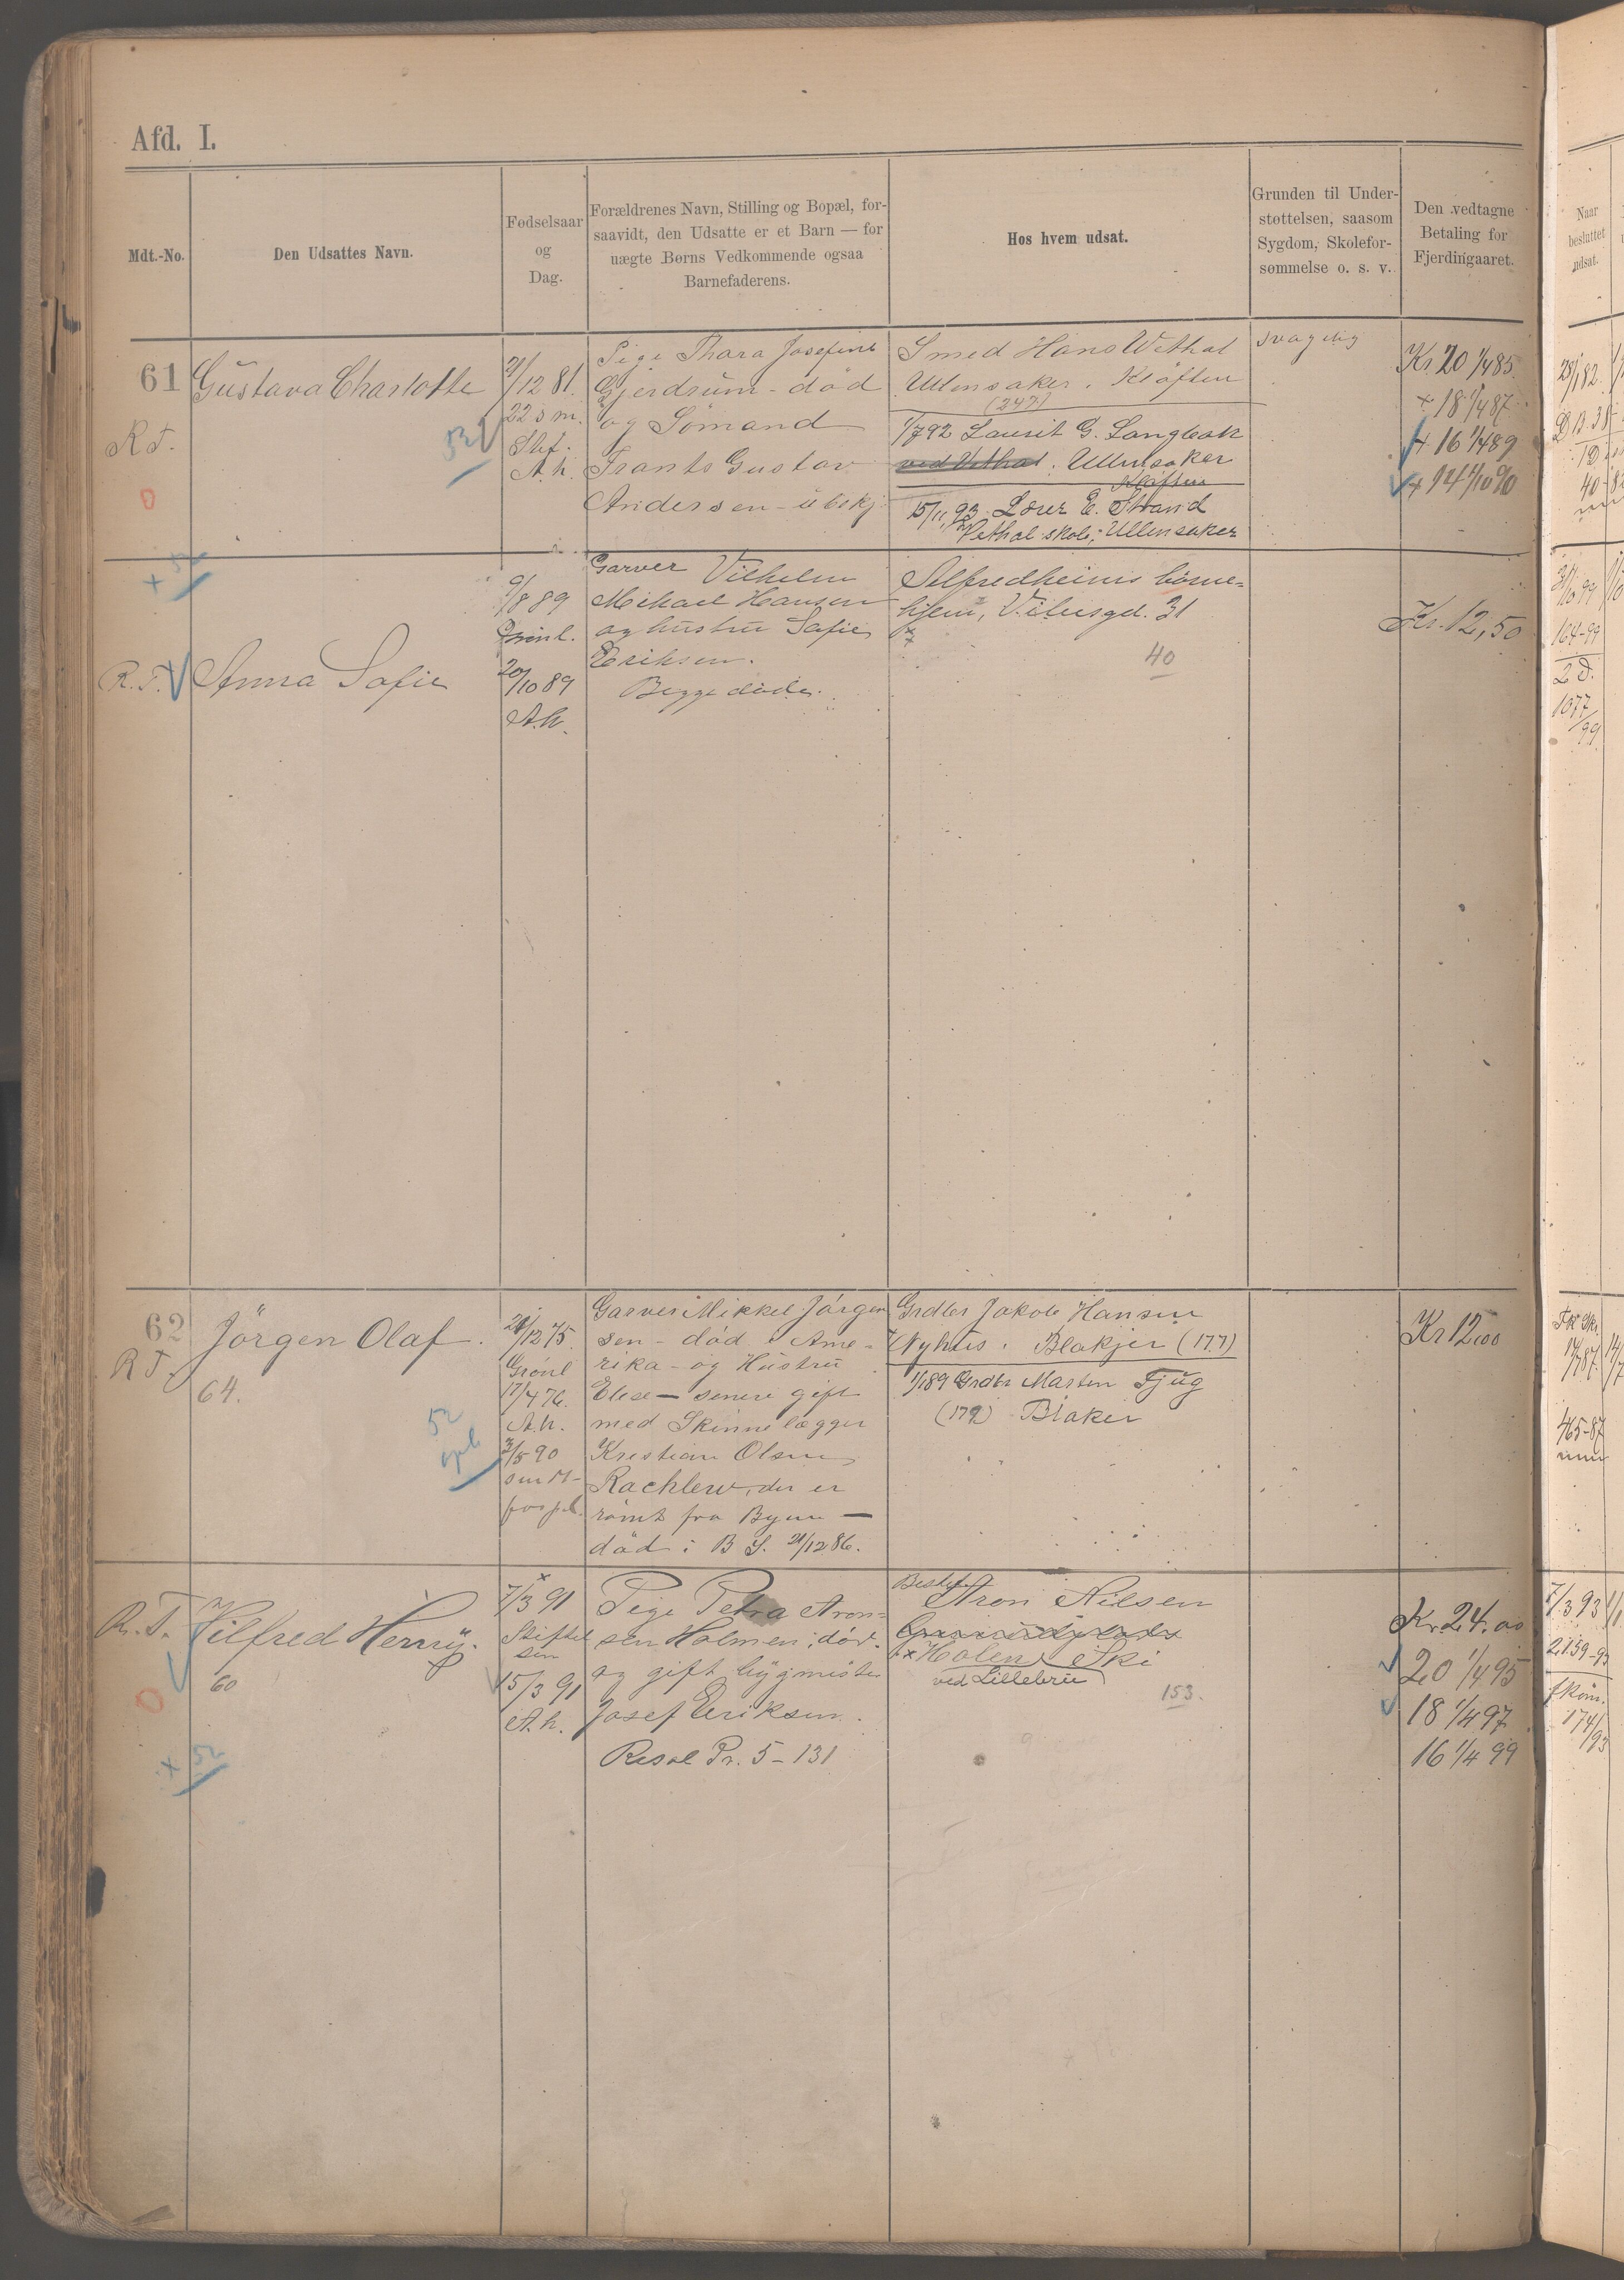 Afd. I.
Mdt.-No.
Den Udsattes Navn.
Fødselsaar
og
Dag.
Forældrenes Navn, Stilling og Bopæl, for-
saavidt, den Udsatte er et Barn — for
uægte Børns Vedkommende ogsaa
Barnefaderens.
Hos hvem udsat.
Grunden til Under-
støttelsen, saasom
Sygdom, Skolefor-
sømmelse o. s. v.
Den vedtagne
Betaling for
Fjerdingaaret.
Naar
besluttet
udsat.
61
R T.
0
Gustava Charlotte
52
21/12 81.
22 s m.
Stif.
A. h.
Pige Thara Josefine
Gjerdrum - död
og Sömand
Frants Gustav
Andersen - ubekj.
Smed Hans Wethal
Ullensaker. Klöften
(247)
1/7 92 Laurit G. Langbak
ved Vethal. Ullensaker
Klöften
15/11 93. Lærer E. Strand
Vethal skole, Ullensaker
svagelig
Kr. 20 1/4 85.
+ 18 1/4 87.
+ 16 1/4 89
+ 14 1/10 90
+ 52
R. T.
Anna Sofie
9/8 89
Grönl.
20/10 89
A.h.
Garver Vilhelm
Mikael Hansen
og hustru Sofie
Eriksen.
Begge döde.
Alfredheims börne=
hjem, Vibesgd. 31
40
Kr. 12,50
31/10 99
164-99
2 D.
1077/99
62
R T
Jörgen Olaf.
64.
52
21/12 75.
Grönl
17/4 76.
A.h.
3/5 90
Garver Mikkel Jörgen
sen - död i Ame-
rika - og Hustru
Elise - senere gift
med Skinnelægger
Kristian Olsen
Rachlew, der er
römt fra Byen —
död i B S. 21/12 86.
Grdbr Jakob Hansen
Nyhus. Blakjer (177)
1/1 89 Grdbr Marten Tjug
(179) Blaker
Kr 12,00
465-87
R. T.
0
+ 52
Vilfred Henry.
60
7/3 91
Stiftel
sen
15/3 91
A.h.
Pige Petra Aron-
sen Holmen, död.
og gift bygmester
Josef Eriksen.
Resol Pr. 5 - 131
Bestef.
Aron Nilsen
Holen Ski
ved Lillebru
153.
Kr. 24.00
20 1/4 95
18 1/4 97
16 1/4 99
7/3 93
2139-93
174/93